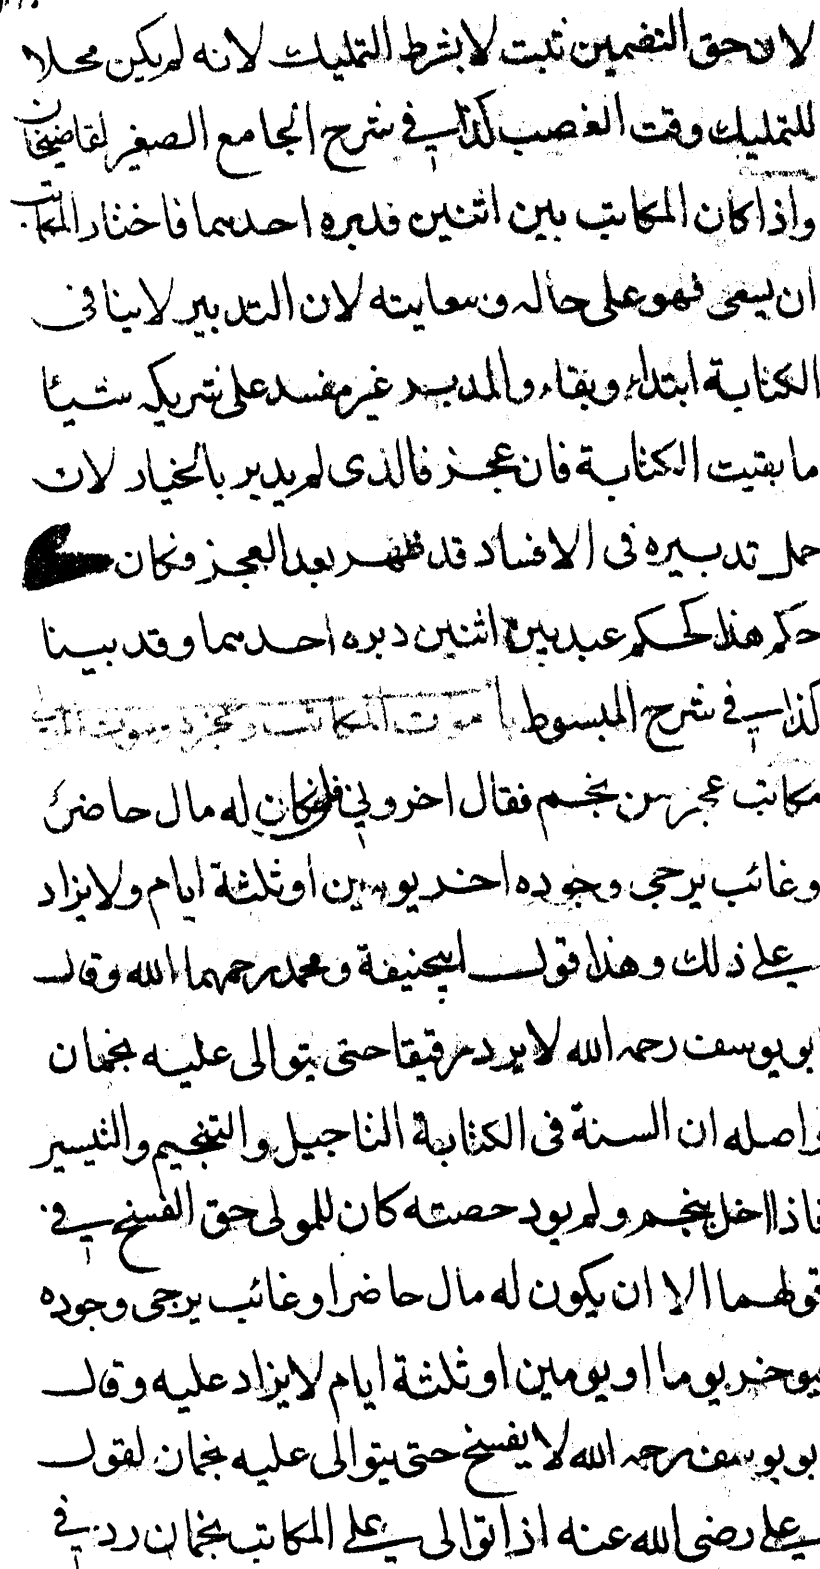 لان حق التضمين تثبت لا بشرط التمليك لانه لم يكن محلا
للتمليك وقت الغصب كذا في شرح الجامع الصغير لقاضيخان
واذا كان المكاتب بين اثنين فدبره احدهما فاختار المكاتب
ان يسعى فهو على حاله وسعايته لان التدبير لا ينافى
الكتابة ابتداء وبقاء والمدبر غير مفسد على شريكه شيئا
ما بقيت الكتابة فان عجز فالذى لم يدبر بالخيار لان
عمل تدبيره فى الافساد قد ظهر بعد العجز فكان
حكم هذا كحكم عبد بين اثنين دبره احدهما وقد بينا
كذا في شرح المبسوط باب موت المكاتب وعجزه وموت المولى
مكاتب عجز عن نجم فقال اخرونى فان كان له مال حاضر
وغائب يرجى وجوده اخر يومين او ثلثة ايام ولا يزاد
على ذلك وهذا قول ابيحنيفة ومحمد رحمهما الله وقال
ابو يوسف رحمه الله لا يرد رقيقا حتى يتوالى عليه نجمان
واصله ان السنة فى الكتابة التاجيل والتنجيم والتيسير
فاذا اخل بنجم ولم يود حصته كان للمولى حق الفسخ في
قولهما الا ان يكون له مال حاضر او غائب يرجى وجوده
فيوخر يوما او يومين او ثلثة ايام لا يزاد عليه وقال
ابو يوسف رحمه الله لا يفسخ حتى يتوالى عليه نجمان لقول
على رضى الله عنه اذا توالى على المكاتب نجمان رد في